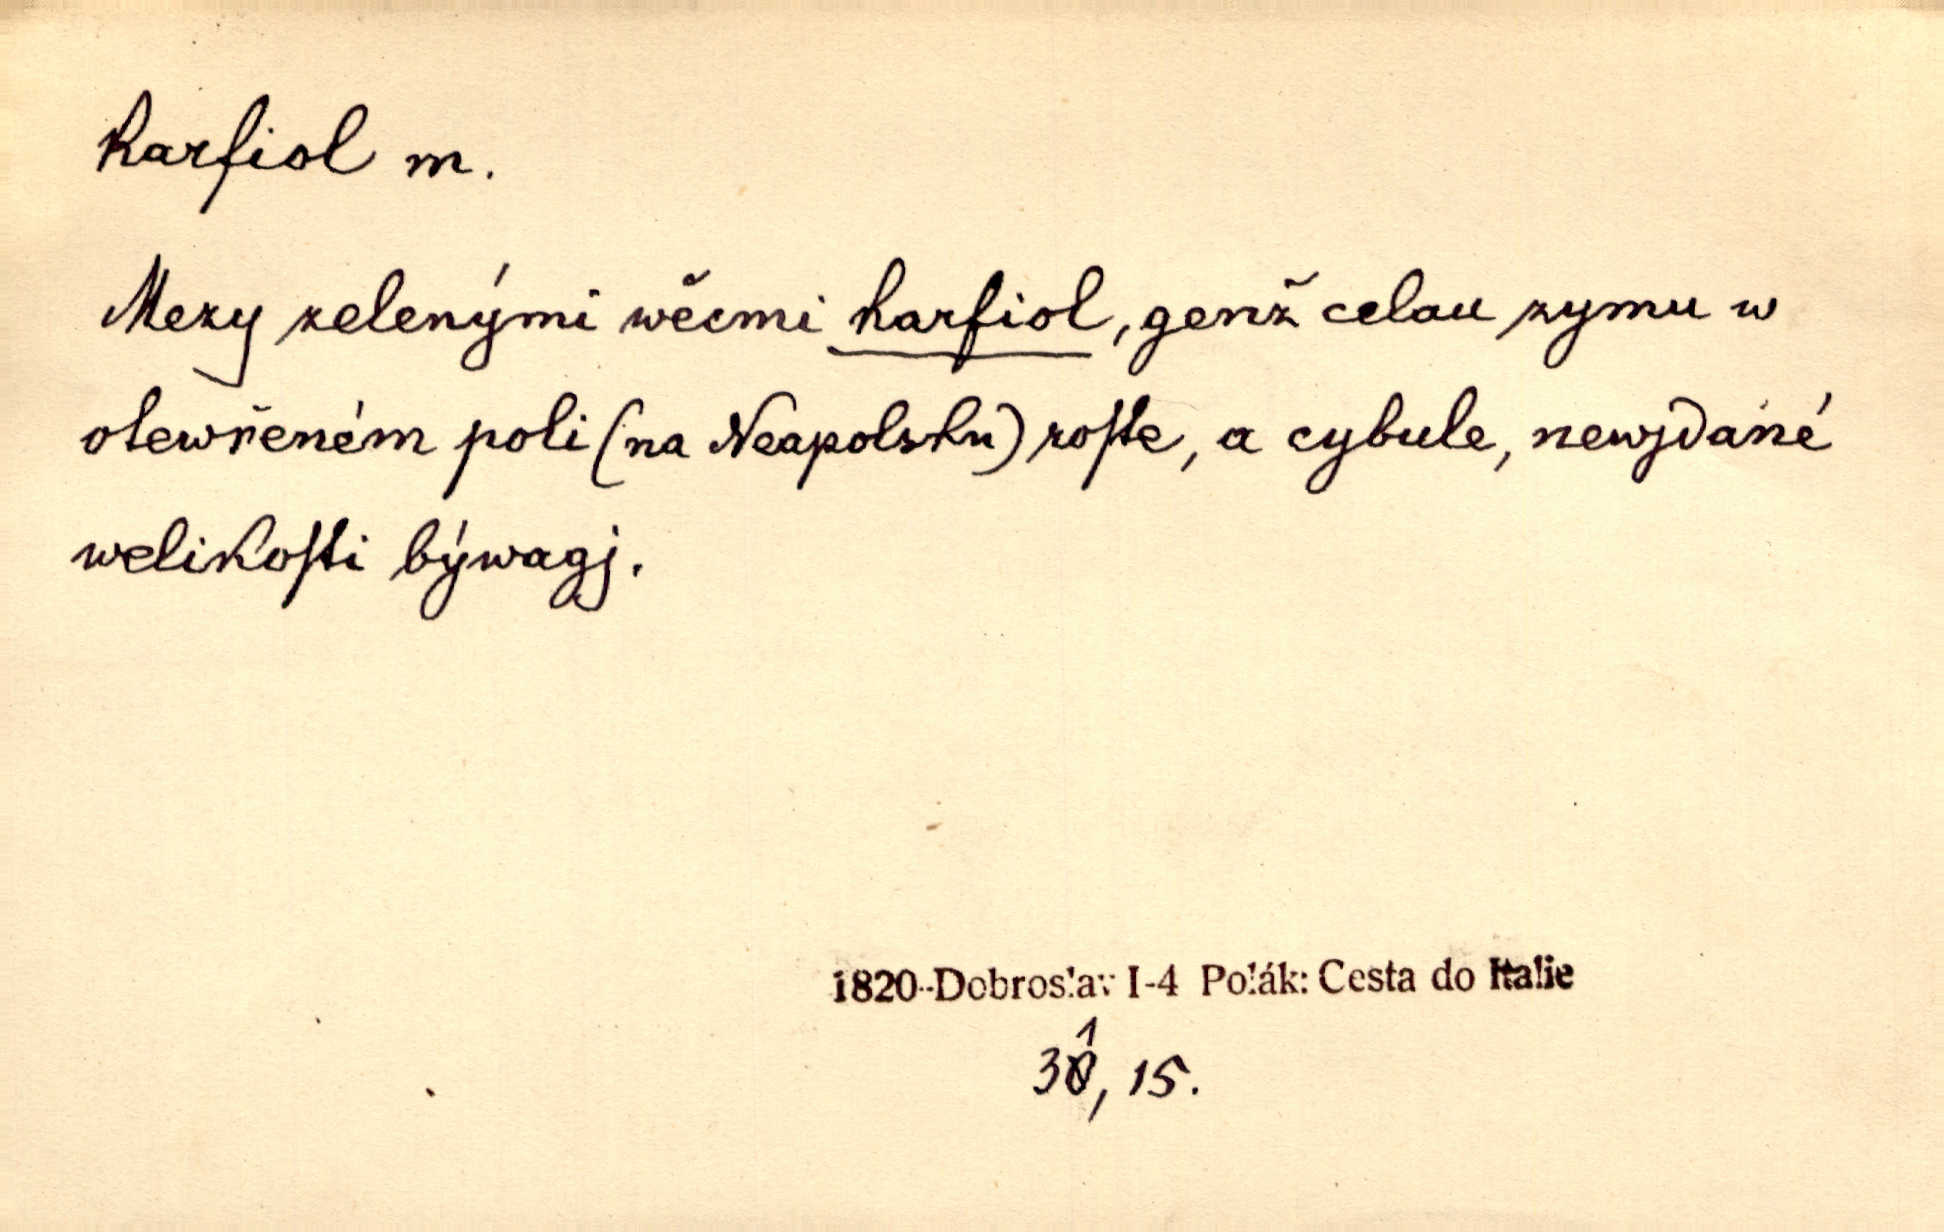 Karfiol m.
Mezy zelenými wěcmi karfiol, genž celau zymu w
otewřeném poli (na Neapolsku) roſte, a cybule, newjdané
welikoſti býwagj.
1820--Dobroslav I-4 Polák: Cesta do Italie
31, 15.